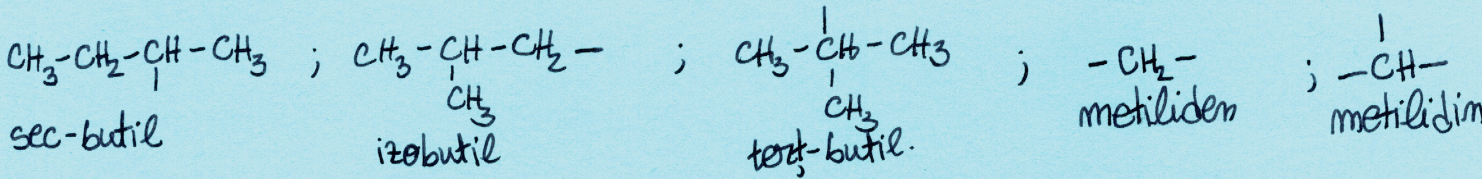 CH₃-CH₂-CH-CH₃ ; CH₃-CH-CH₂- ; CH₃-CH-CH₃ ; -CH₂- ; -CH-
CH₃ CH₃
sec-butil izobutil terț-butil. metiliden metilidin